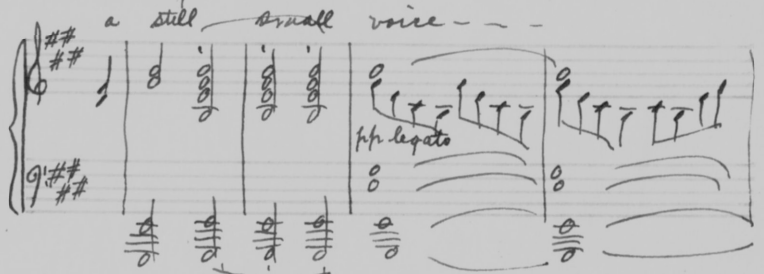 a still small voice - - - -
pp legato